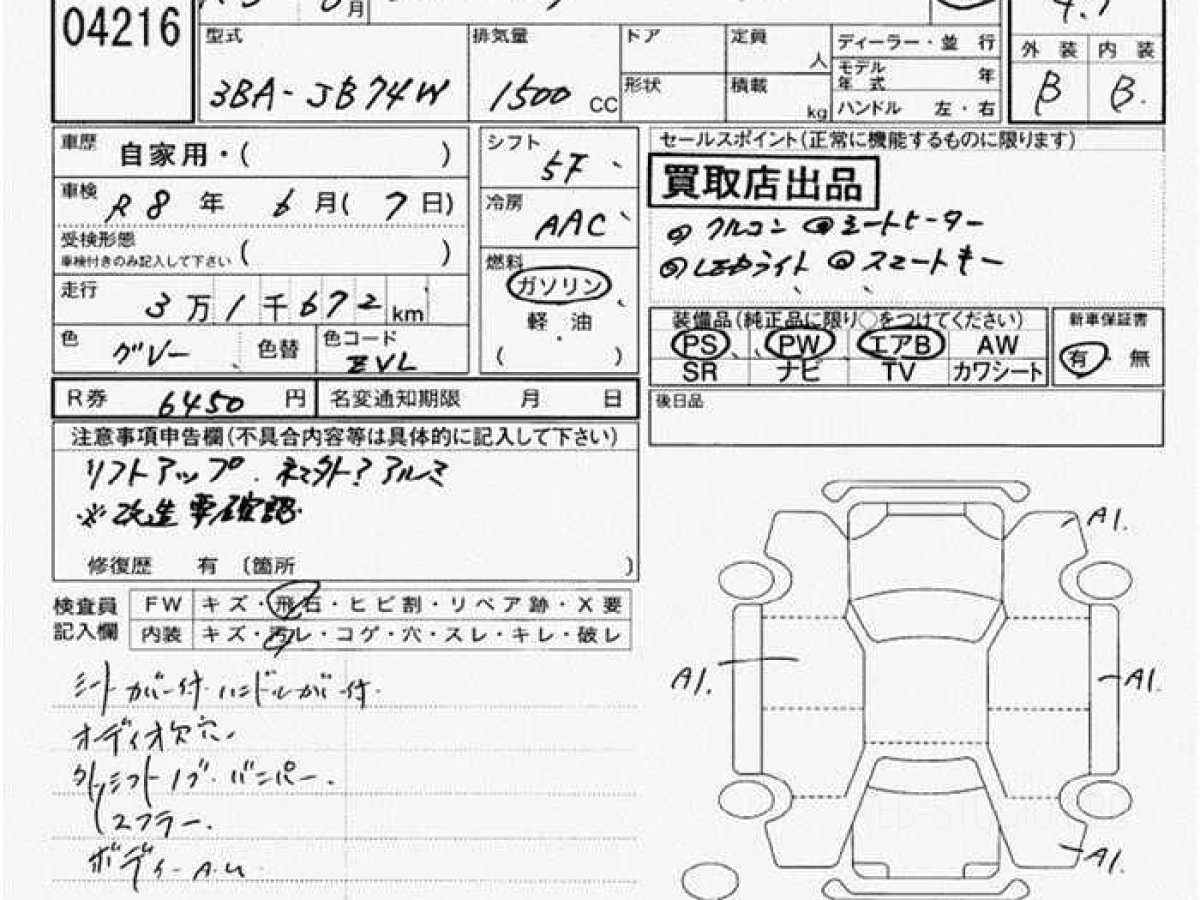 04216
月
型式 3BA-JB74W
排気量 1500 CC
ドア
定員 人
形状
積載 kg
ディーラー・並 行
モデル年式 年
ハンドル 左・右
外 装 内 装
B B.
車歴 自家用・( )
車検 R8年 6月(7日)
受検形態 ( )
車検付きのみ記入して下さい
走行 3万1千672km
色 グレー 色替
色コード ZVL
シフト 5F
冷房 AAC
燃料 ガソリン
軽・油
( )
セールスポイント(正常に機能するものに限ります)
買取店出品
◎クルコン ◎シートヒーター
◎LEDライト ◎スマートキー
装備品(純正品に限り○をつけてください)
PS PW エアB AW
SR ナビ TV カワシート
新車保証書
有・無
R券 6450円
名変通知期限 月 日
後日品
注意事項申告欄(不具合内容等は具体的に記入して下さい)
リフトアップ. 社外?アルミ
※改造車確認
修復歴 有 〔箇所 〕
検査員記入欄
FW キズ・飛石・ヒビ割・リペア跡・X要
内装 キズ・汚レ・コゲ・穴・スレ・キレ・破レ
シートカバー付. ハンドルカバー付.
オーディオ欠穴.
シフトノブ・バンパー.
マフラー.
ボディーA.U
A1.
A1.
A1.
A1.